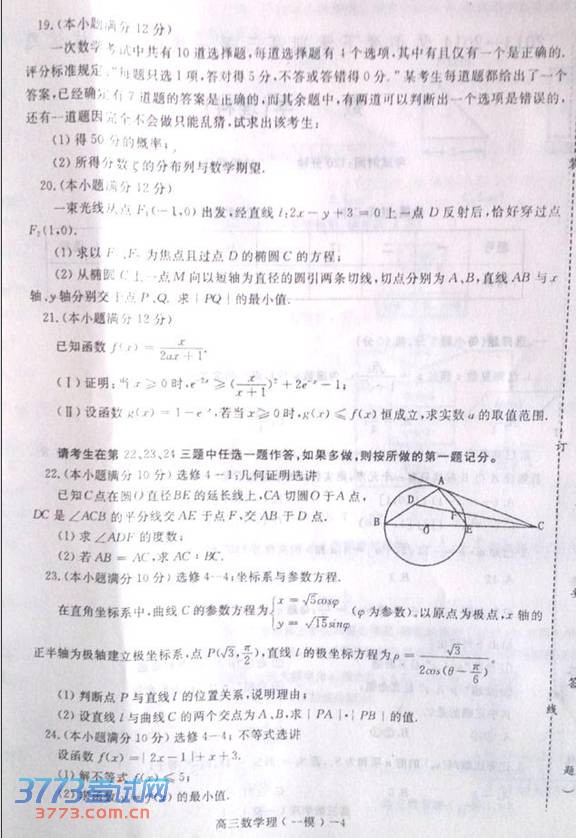 19.(本小题满分12分)
一次数学考试中共有10道选择题,每道选择题有4个选项,其中有且仅有一个是正确的.
评分标准规定:“每题只选1项,答对得5分,不答或答错得0分。”某考生每道题都给出了一个
答案,已经确定有7道题的答案是正确的,而其余题中,有两道可以判断出一个选项是错误的,
还有一道题因完全不会做只能乱猜,试求出该考生:
(1)得50分的概率;
(2)所得分数ζ的分布列与数学期望.
20.(本小题满分12分)
一束光线从点F₁(-1,0)出发,经直线l:2x-y+3=0上一点D反射后,恰好穿过点
F₂(1,0).
(1)求以F₁、F₂为焦点且过点D的椭圆C的方程;
(2)从椭圆C上一点M向以短轴为直径的圆引两条切线,切点分别为A、B,直线AB与x
轴、y轴分别交于点P、Q. 求|PQ|的最小值.
21.(本小题满分12分)
已知函数f(x)=x/(2ax+1).
(Ⅰ)证明:当x≥0时,e⁻²ˣ≥(x/(x+1))²+2e⁻ˣ-1;
(Ⅱ)设函数g(x)=1-e⁻ˣ,若当x≥0时,g(x)≤f(x)恒成立,求实数a的取值范围.
请考生在第22、23、24三题中任选一题作答,如果多做,则按所做的第一题记分。
22.(本小题满分10分)选修4-1:几何证明选讲
已知C点在圆O直径BE的延长线上,CA切圆O于A点,
DC是∠ACB的平分线交AE于点F,交AB于D点.
(1)求∠ADF的度数;
(2)若AB=AC,求AC:BC.
A
D
F
B
O
E
C
23.(本小题满分10分)选修4-4:坐标系与参数方程.
在直角坐标系中,曲线C的参数方程为{x=√5cosφ y=√15sinφ (φ为参数)。以原点为极点,x轴的
正半轴为极轴建立极坐标系,点P(√3,π/2),直线l的极坐标方程为ρ=√3/(2cos(θ-π/6)).
(1)判断点P与直线l的位置关系,说明理由;
(2)设直线l与曲线C的两个交点为A、B,求|PA|·|PB|的值.
24.(本小题满分10分)选修4-4:不等式选讲
设函数f(x)=|2x-1|+x+3.
(1)解不等式f(x)≤5;
(2)求函数y=f(x)的最小值.
高三数学理(一模)-4
订
线
答
题
3773考试网
3773.com.cn